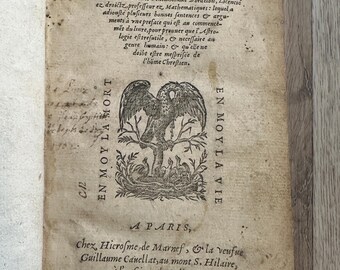 ez, droictz, professeur ez, Mathematiques: lequel a
adiousté plusieurs bonnes sentences & argu-
ments à une preface qui est au commence-
ment du liure, pour prouuer que l'Astro-
logie est tresutile, & necessaire au
genre humain: & qu'elle ne
doibt estre mesprisee de
l'hõme Chrestien.
EN MOY LA MORT
EN MOY LA VIE
A PARIS,
Chez Hierosme de Marnef, & la veufue
Guillaume Cauellat, au mont S. Hilaire,